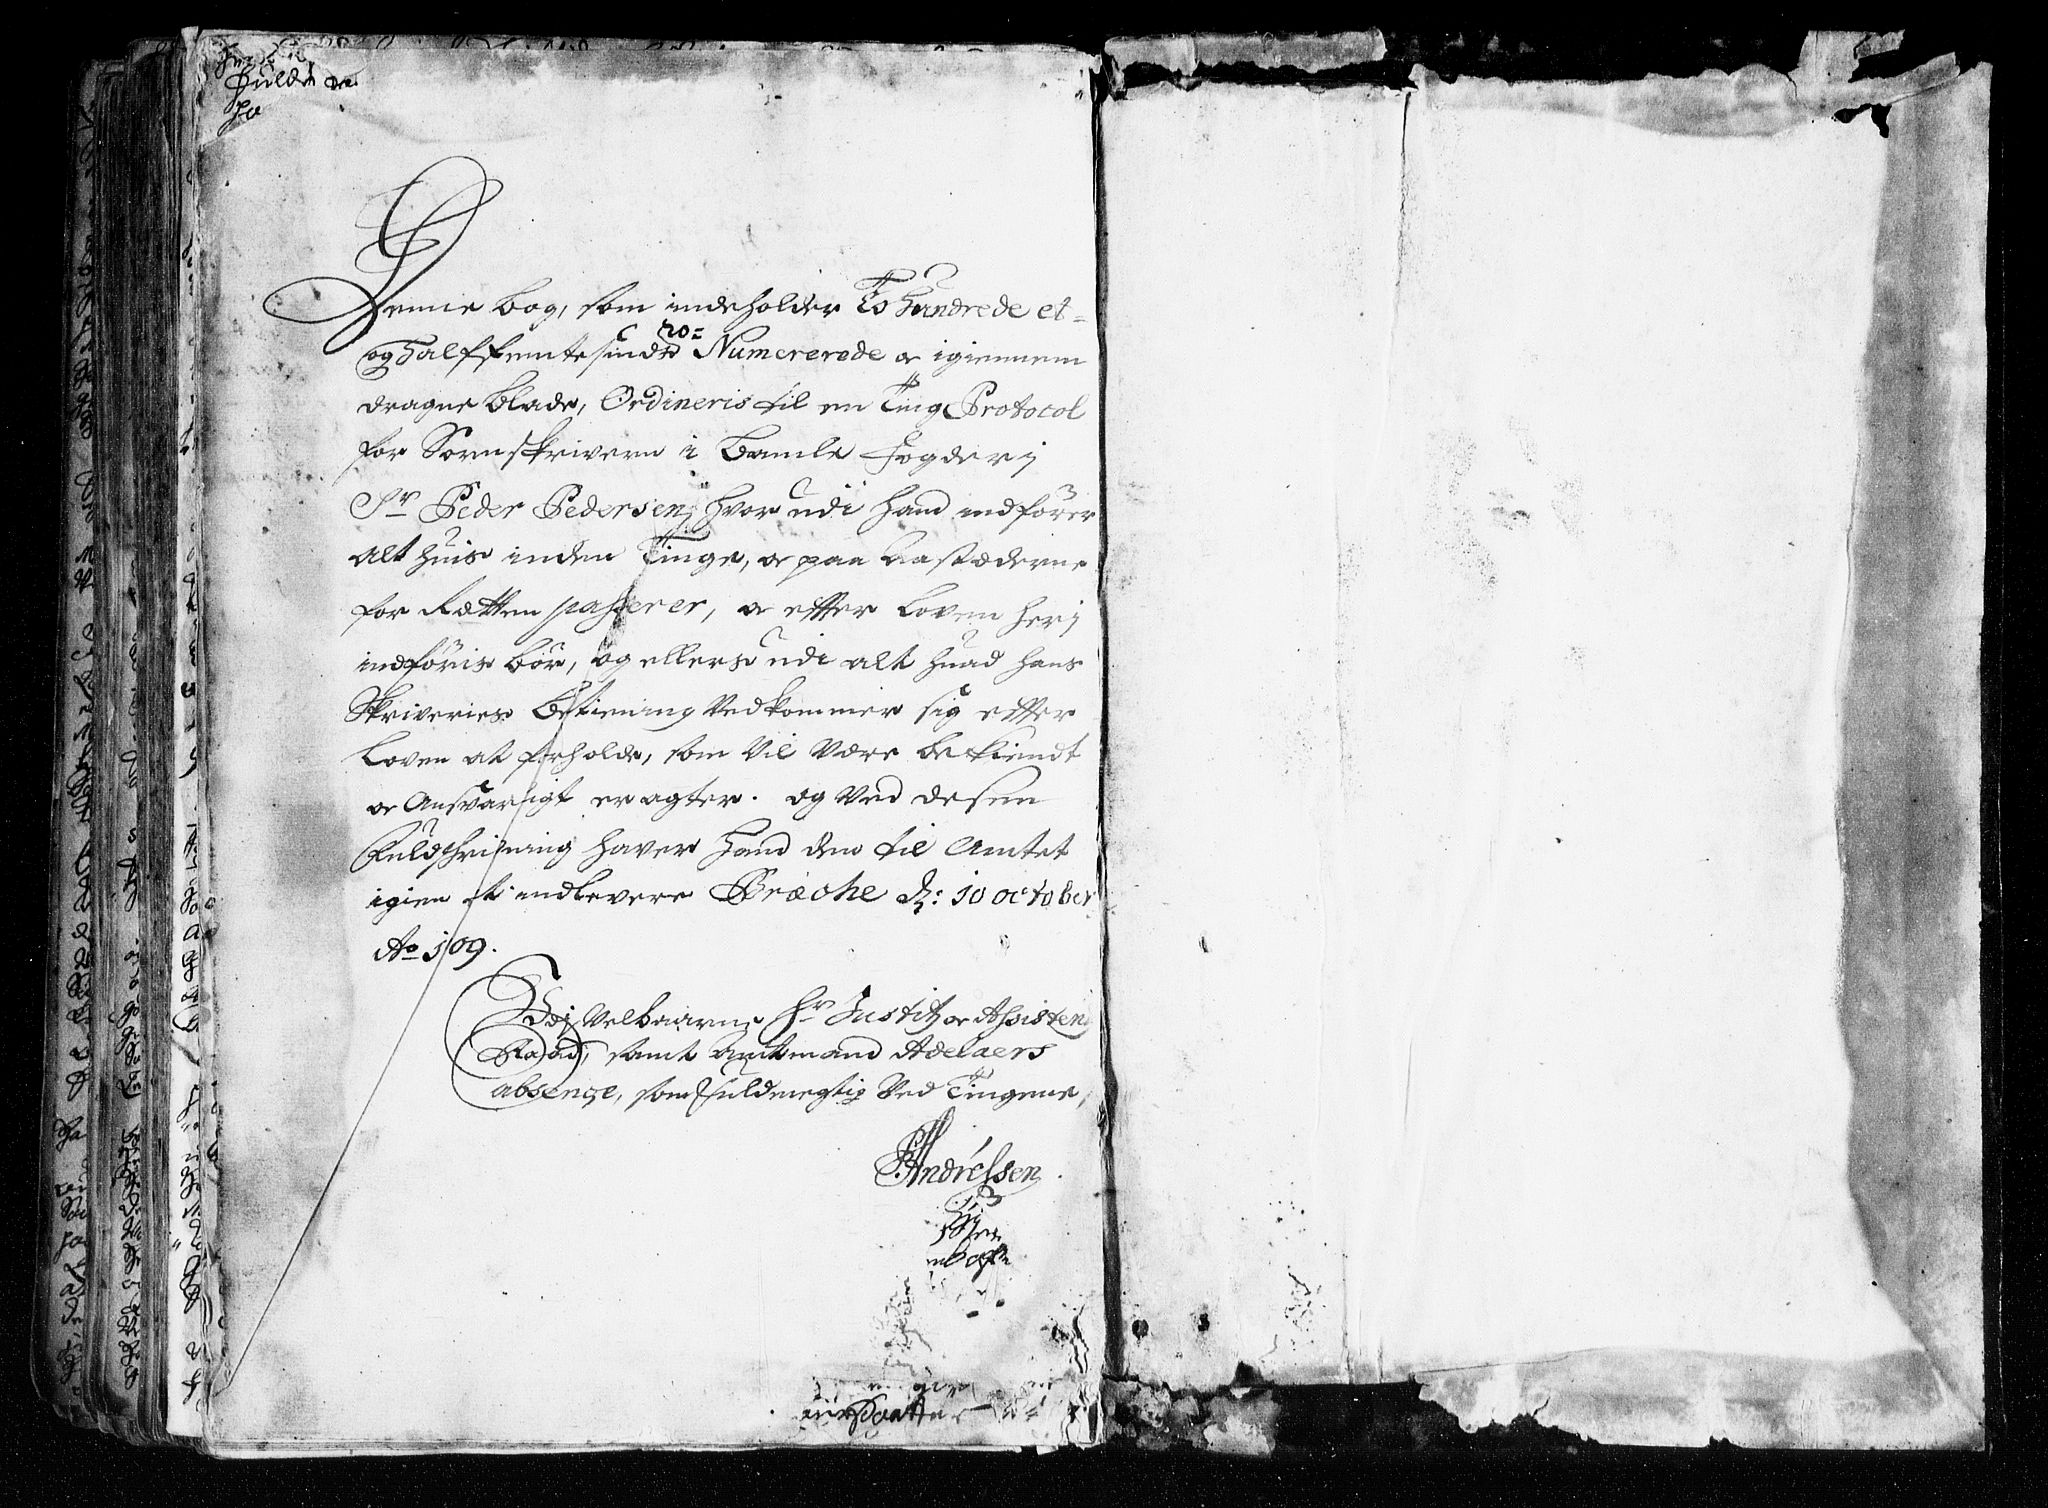 Denne bog, som indeholder To Hundrede et-
og Halffemtesinds Numererede og igiennem
dragne blade, Ordineris til en Ting Protocol
for Sorenskriveren i Bamle Fogderj
Sr Peder Pedersen, hvor udi hand indfører
alt huis inden Tinge, og paa Aastæderne
for Rætten passerer, og efter Loven herj
indføris bør, og ellers udi alt huad hans
Skriveries Betiening Vedkommer sig efter
Loven at forholde, som Vil Være bekiendt
og Ansvarligt eragter. og Ved desen
Fuldschrifning haver Hand den til Amtet
igien at indlevere Bræche d: 10 october
Ao 1709.
Udj Velbaarne Hr Justitz og Assistentz
Raad, samt Amtmand Adelaers
absenze, som Fuldmegtig Ved Tingene,
P. Andréssen